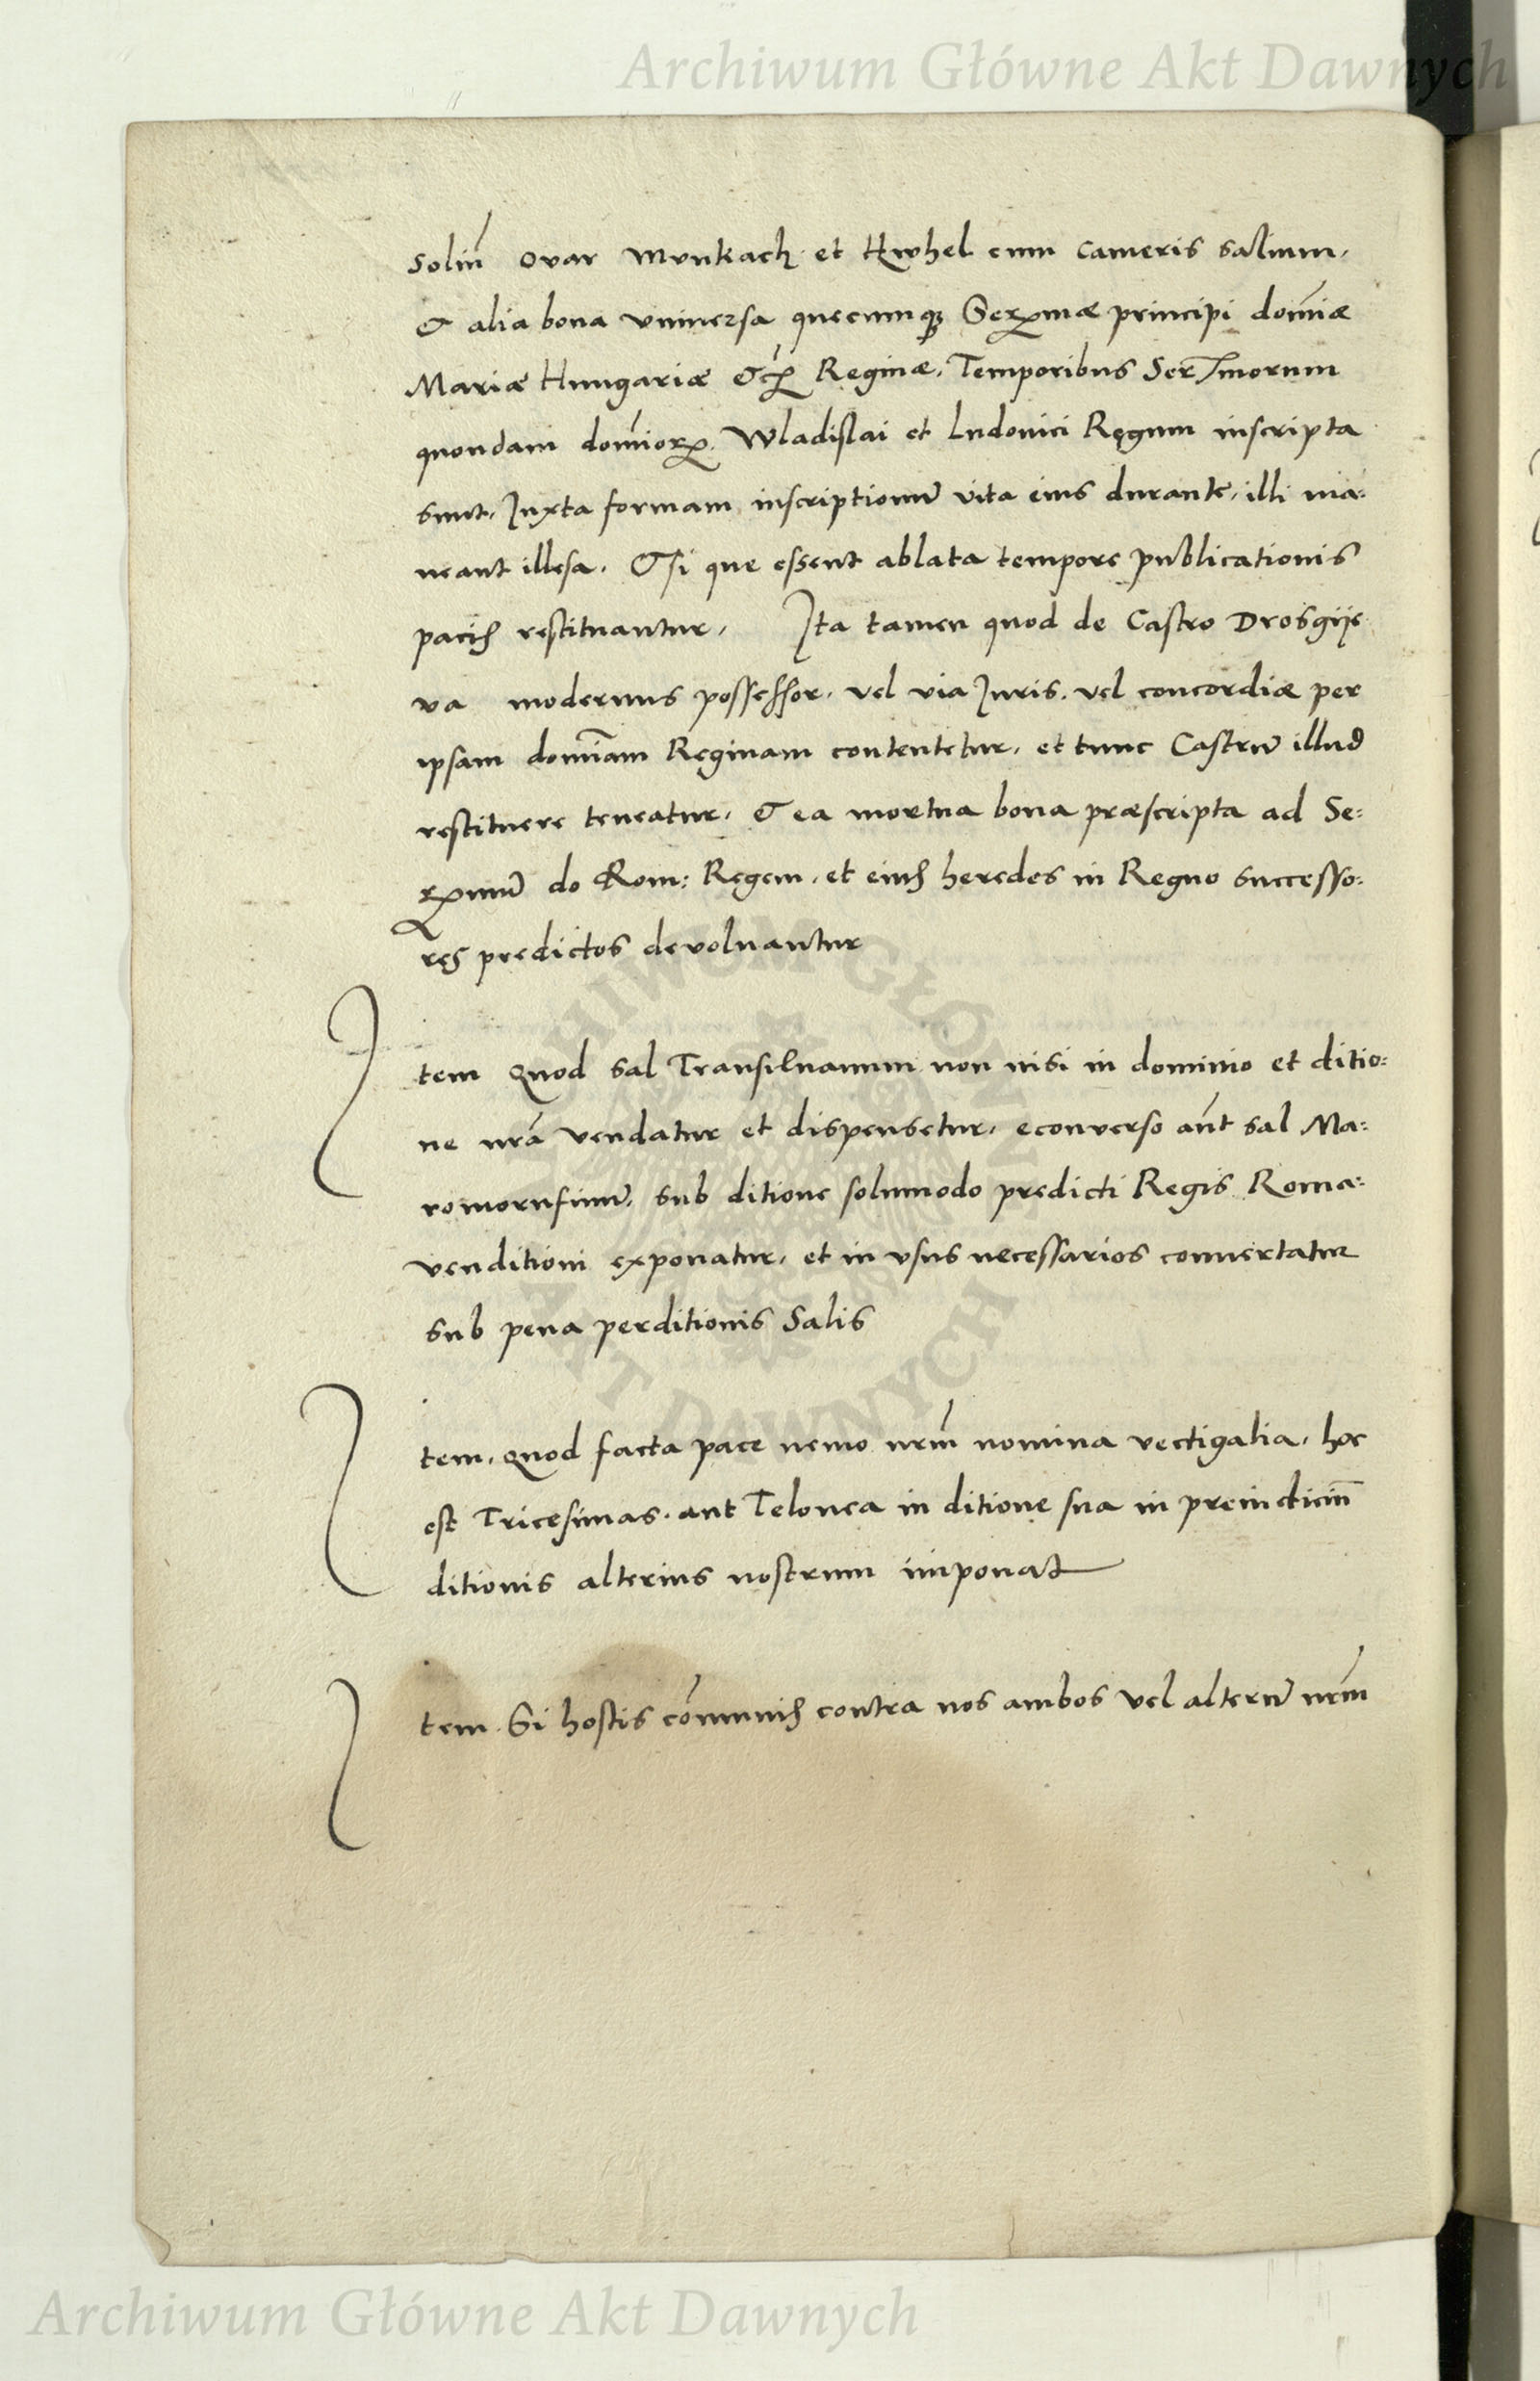 Archiwum Główne Akt Dawnych
Soliu͂ Ovar Mvnkach et Hwhel cum Cameris salium,
& alia bona vniuersa quecumq3 Serꝫmæ principi domi͂æ
Mariæ Hungariæ &c Reginæ, Temporibus Ser͂morum
quondam domi͂orꝝ Wladislai et Ludouici Regum inscripta
sunt, Juxta formam inscriptionu͂ vita eius durante, illi ma:
neant illesa. Et si que essent ablata tempore publicationis
pacis restituantur, Ita tamen quod de Castro Drosgije
va modernus possessor, vel via Juris, vel concordiæ per
ipsam domi͂am Reginam contentetur, et tunc Castru͂ illud
restituere teneatur, & ea mortua bona præscripta ad Se:
rꝫmu͂ do Rom: Regem, et eius heredes in Regno successo:
res predictos devoluantur
Item Quod sal Transiluanum non nisi in dominio et ditio:
ne nr͂a vendatur et dispensetur, econverso au͂t sal Ma:
romorusinu͂, sub ditione solummodo predicti Regis Roma:
venditioni exponatur, et in vsus necessarios conuertatur
sub pena perditionis Salis
Item, quod facta pace nemo nr͂m nomina vectigalia, hoc
est Tricesimas, aut Telonea in ditione sua in preiudiciu͂
ditionis alterius nostrum imponat
Item. Si hostis co͂munis contra nos ambos vel alteru͂ nr͂m
ARCHIWUM GŁÓWNE
AKT DAWNYCH
Archiwum Główne Akt Dawnych